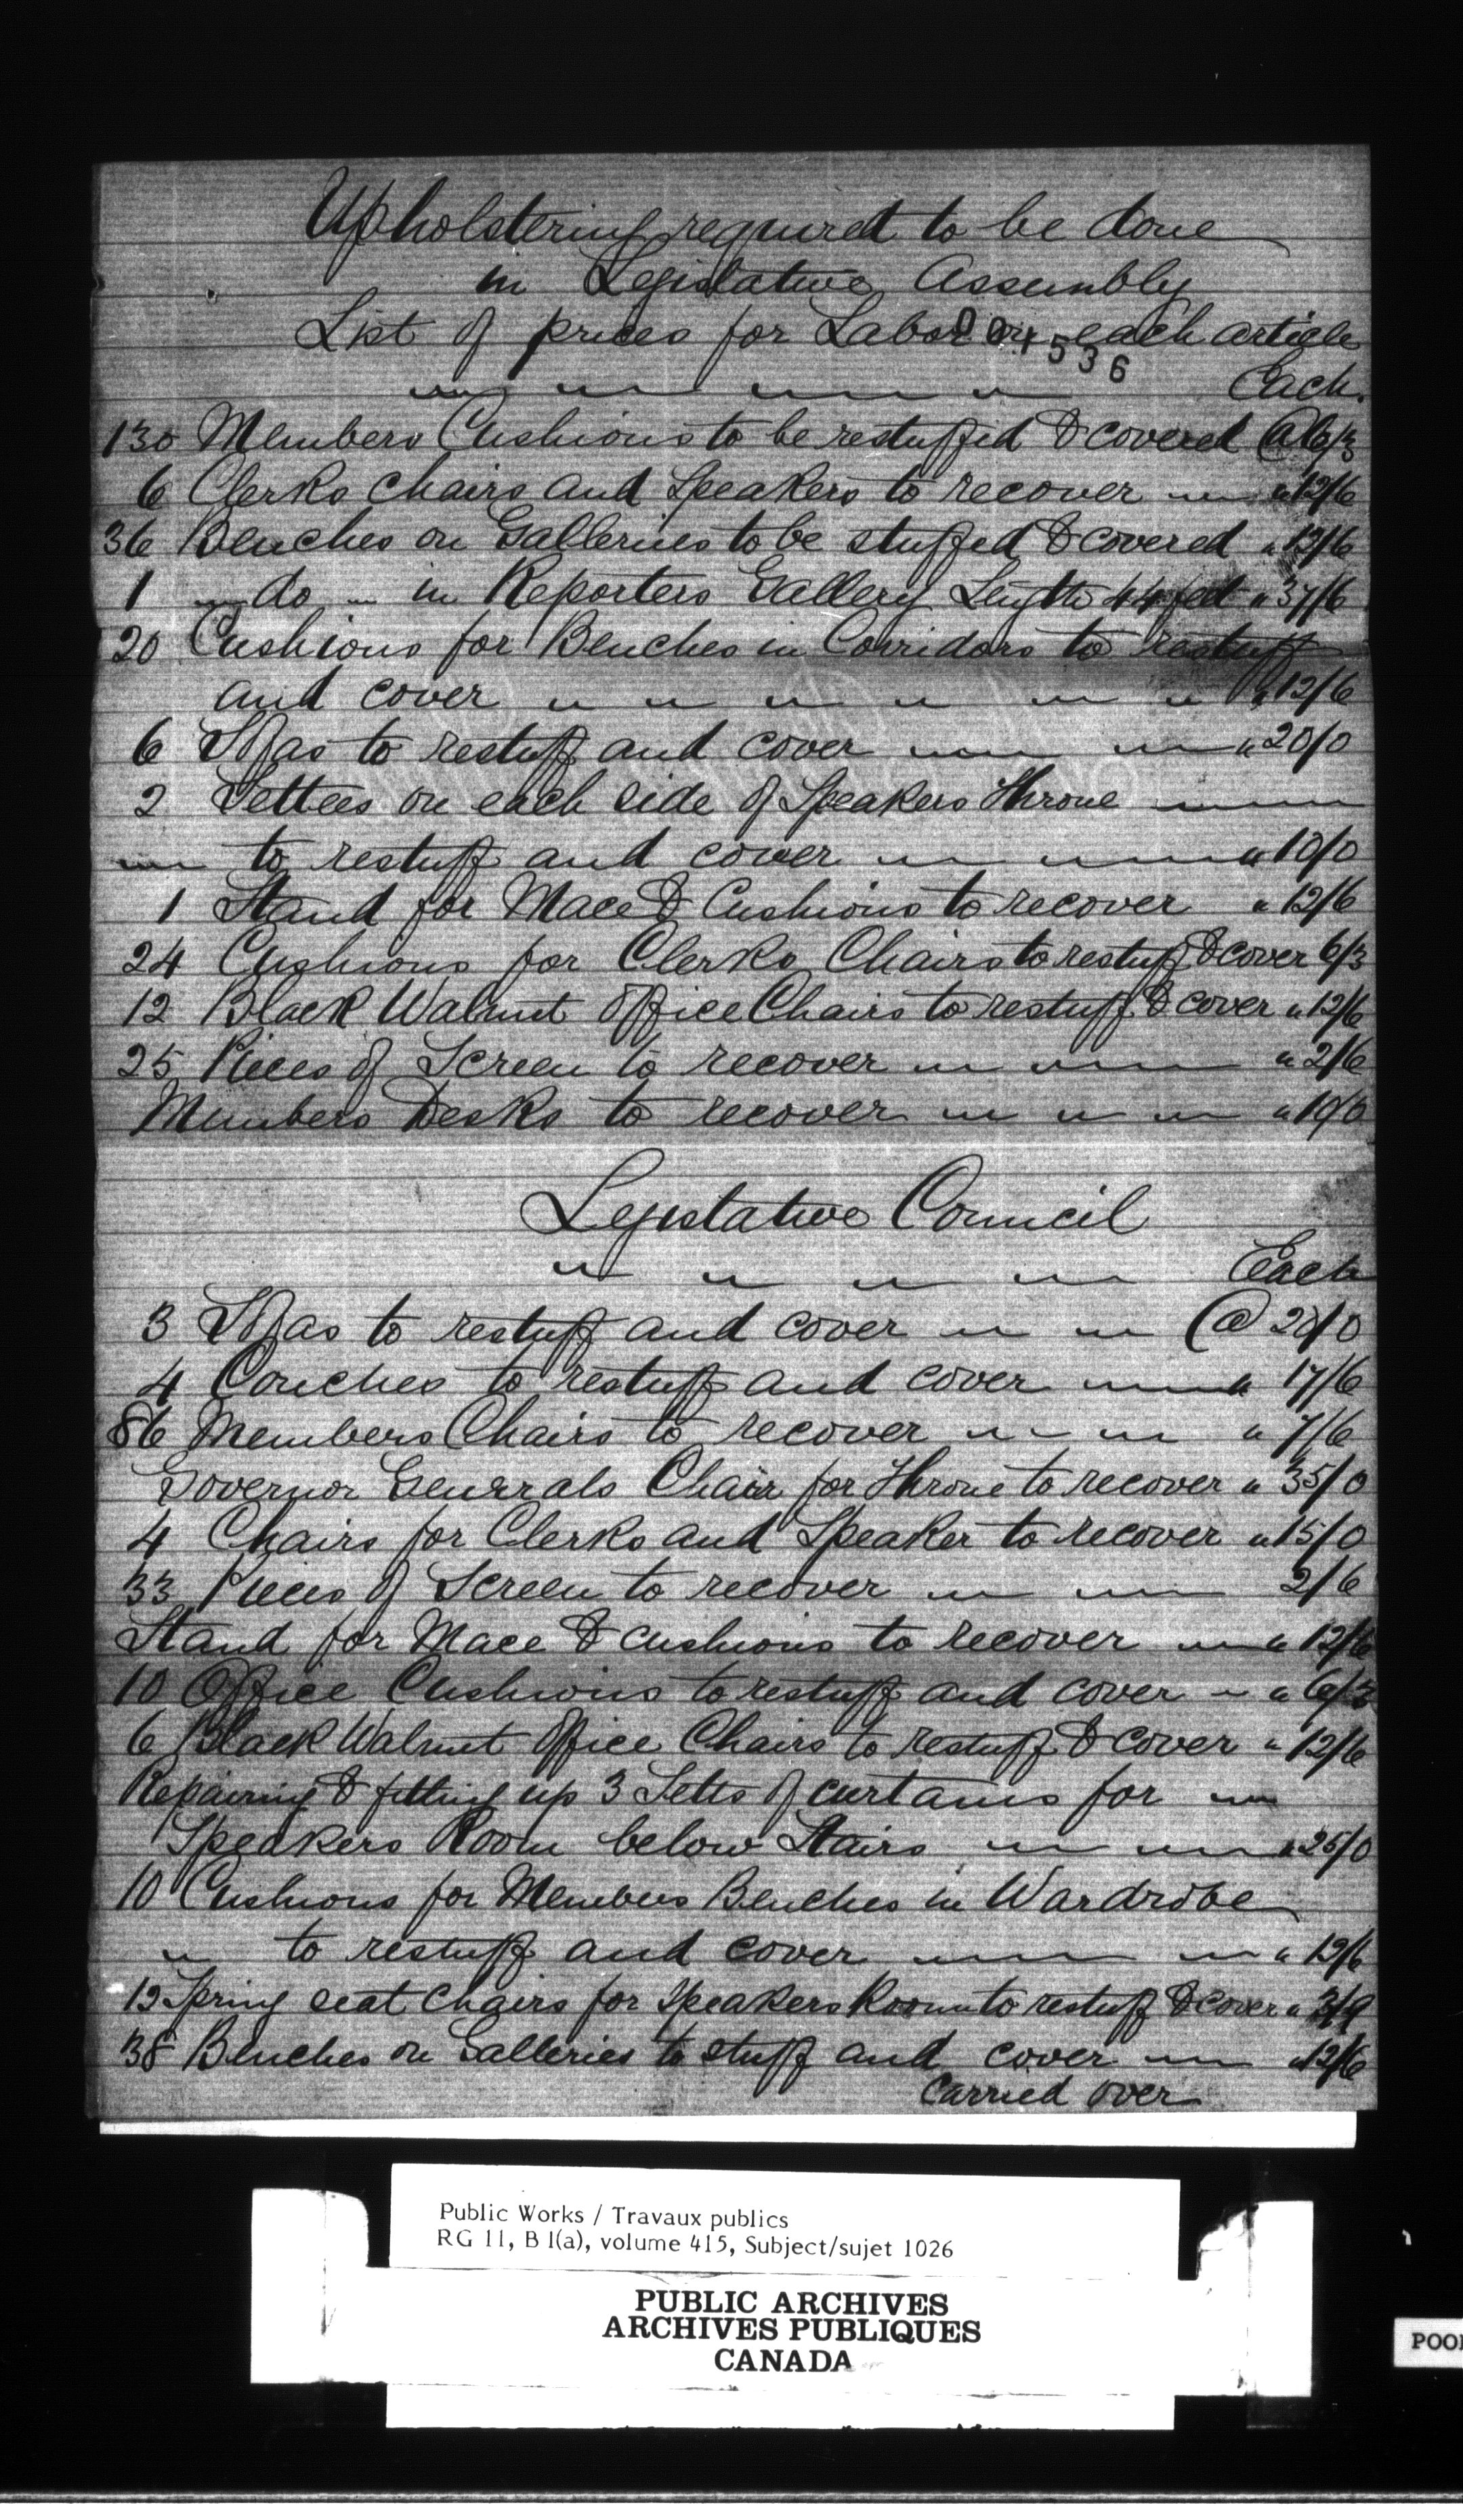 Upholstering required to be done
in Legislative Assembly
List of prices for Labor on each article
004536
Each.
130 Members Cushions to be restuffed & covered @ 6/3
6 Clerks chairs and Speakers to recover " 12/6
36 Benches on Galleries to be stuffed & covered " 12/6
1 " do " in Reporters Gallery Length 44 feet " 37/6
20 Cushions for Benches in Corridors to restuff
and cover " " " " " " " 12/6
6 Sofas to restuff and cover " 20/0
2 Settees on each side of Speakers Throne
to restuff and cover " 10/0
1 Stand for Mace & Cushions to recover " 12/6
24 Cushions for Clerks Chairs to restuff & cover 6/3
12 Black Walnut Office Chairs to restuff & cover " 12/6
25 Pieces of Screen to recover " 2/6
Members Desks to recover " 10/0
Legislative Council
Each
3 Sofas to restuff and cover @ 20/0
4 Couches to restuff and cover " 17/6
86 Members Chairs to recover " 7/6
Governor Generals Chair for Throne to recover " 35/0
4 Chairs for Clerks and Speaker to recover " 15/0
33 Pieces of Screen to recover 2/6
Stand for Mace & cushions to recover " 12/6
10 Office Cushions to restuff and cover " 6/3
6 Black Walnut Office Chairs to restuff & cover " 12/6
Repairing & fitting up 3 Setts of curtains for
Speakers Room below Stairs " 25/0
10 Cushions for Members Benches in Wardrobe
" to restuff and cover " 12/6
12 Spring seat chairs for Speakers Room to restuff & cover " 3/9
38 Benches on Galleries to stuff and cover " 12/6
Carried over
Public Works / Travaux publics
RG 11, B 1(a), volume 415, Subject/sujet 1026
PUBLIC ARCHIVES
ARCHIVES PUBLIQUES
CANADA